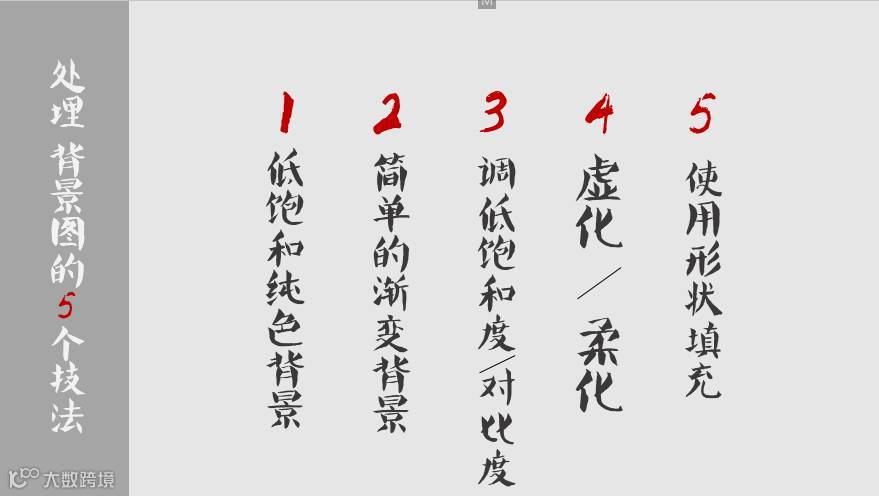 处理背景图的5个技法
1
低饱和纯色背景
2
简单的渐变背景
3
调低饱和度/对比度
4
虚化/柔化
5
使用形状填充
M
大数跨境